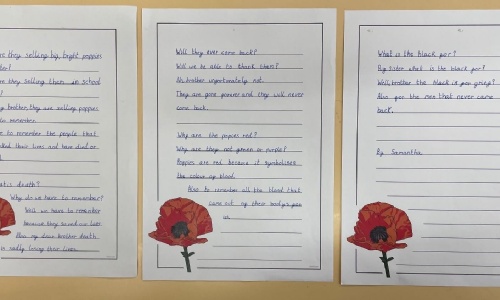 re they selling big, bright poppies
ter?
re they selling them in school
y brother, they are selling poppies
to remember.
e to remember the people that
ked their lives and have died or
d.
at is death?
Why do we have to remember?
Well, we have to remember
because they saved our lives
Also my dear brother death
is sadly losing their lives.
Will they ever come back?
Will we be able to thank them?
Ah, brother unfortunately not.
They are gone forever and they will never
come back.
Why are the popies red?
Why are they not green or purple?
Poppies are red because it symbolises
the colour of blood.
Also to remember all the blood that
came out of their body's for
us.
What is the black for?
Big sister what is the black for?
Well, brother the black is for griev?
Also for the men that never came
back.
By Samantha